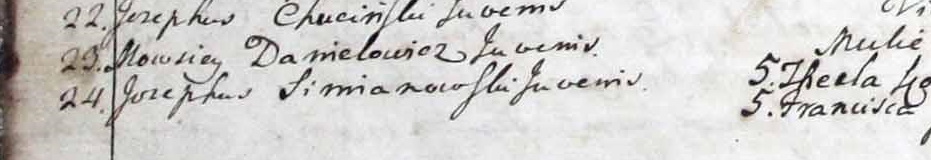 22. Josephus Chuciński Juvenis
23. Mowsiey Danielowicz Juvenis.
24. Josephus Simianowski Juvenis.
Mulie
5. Thecla
5. Francisca